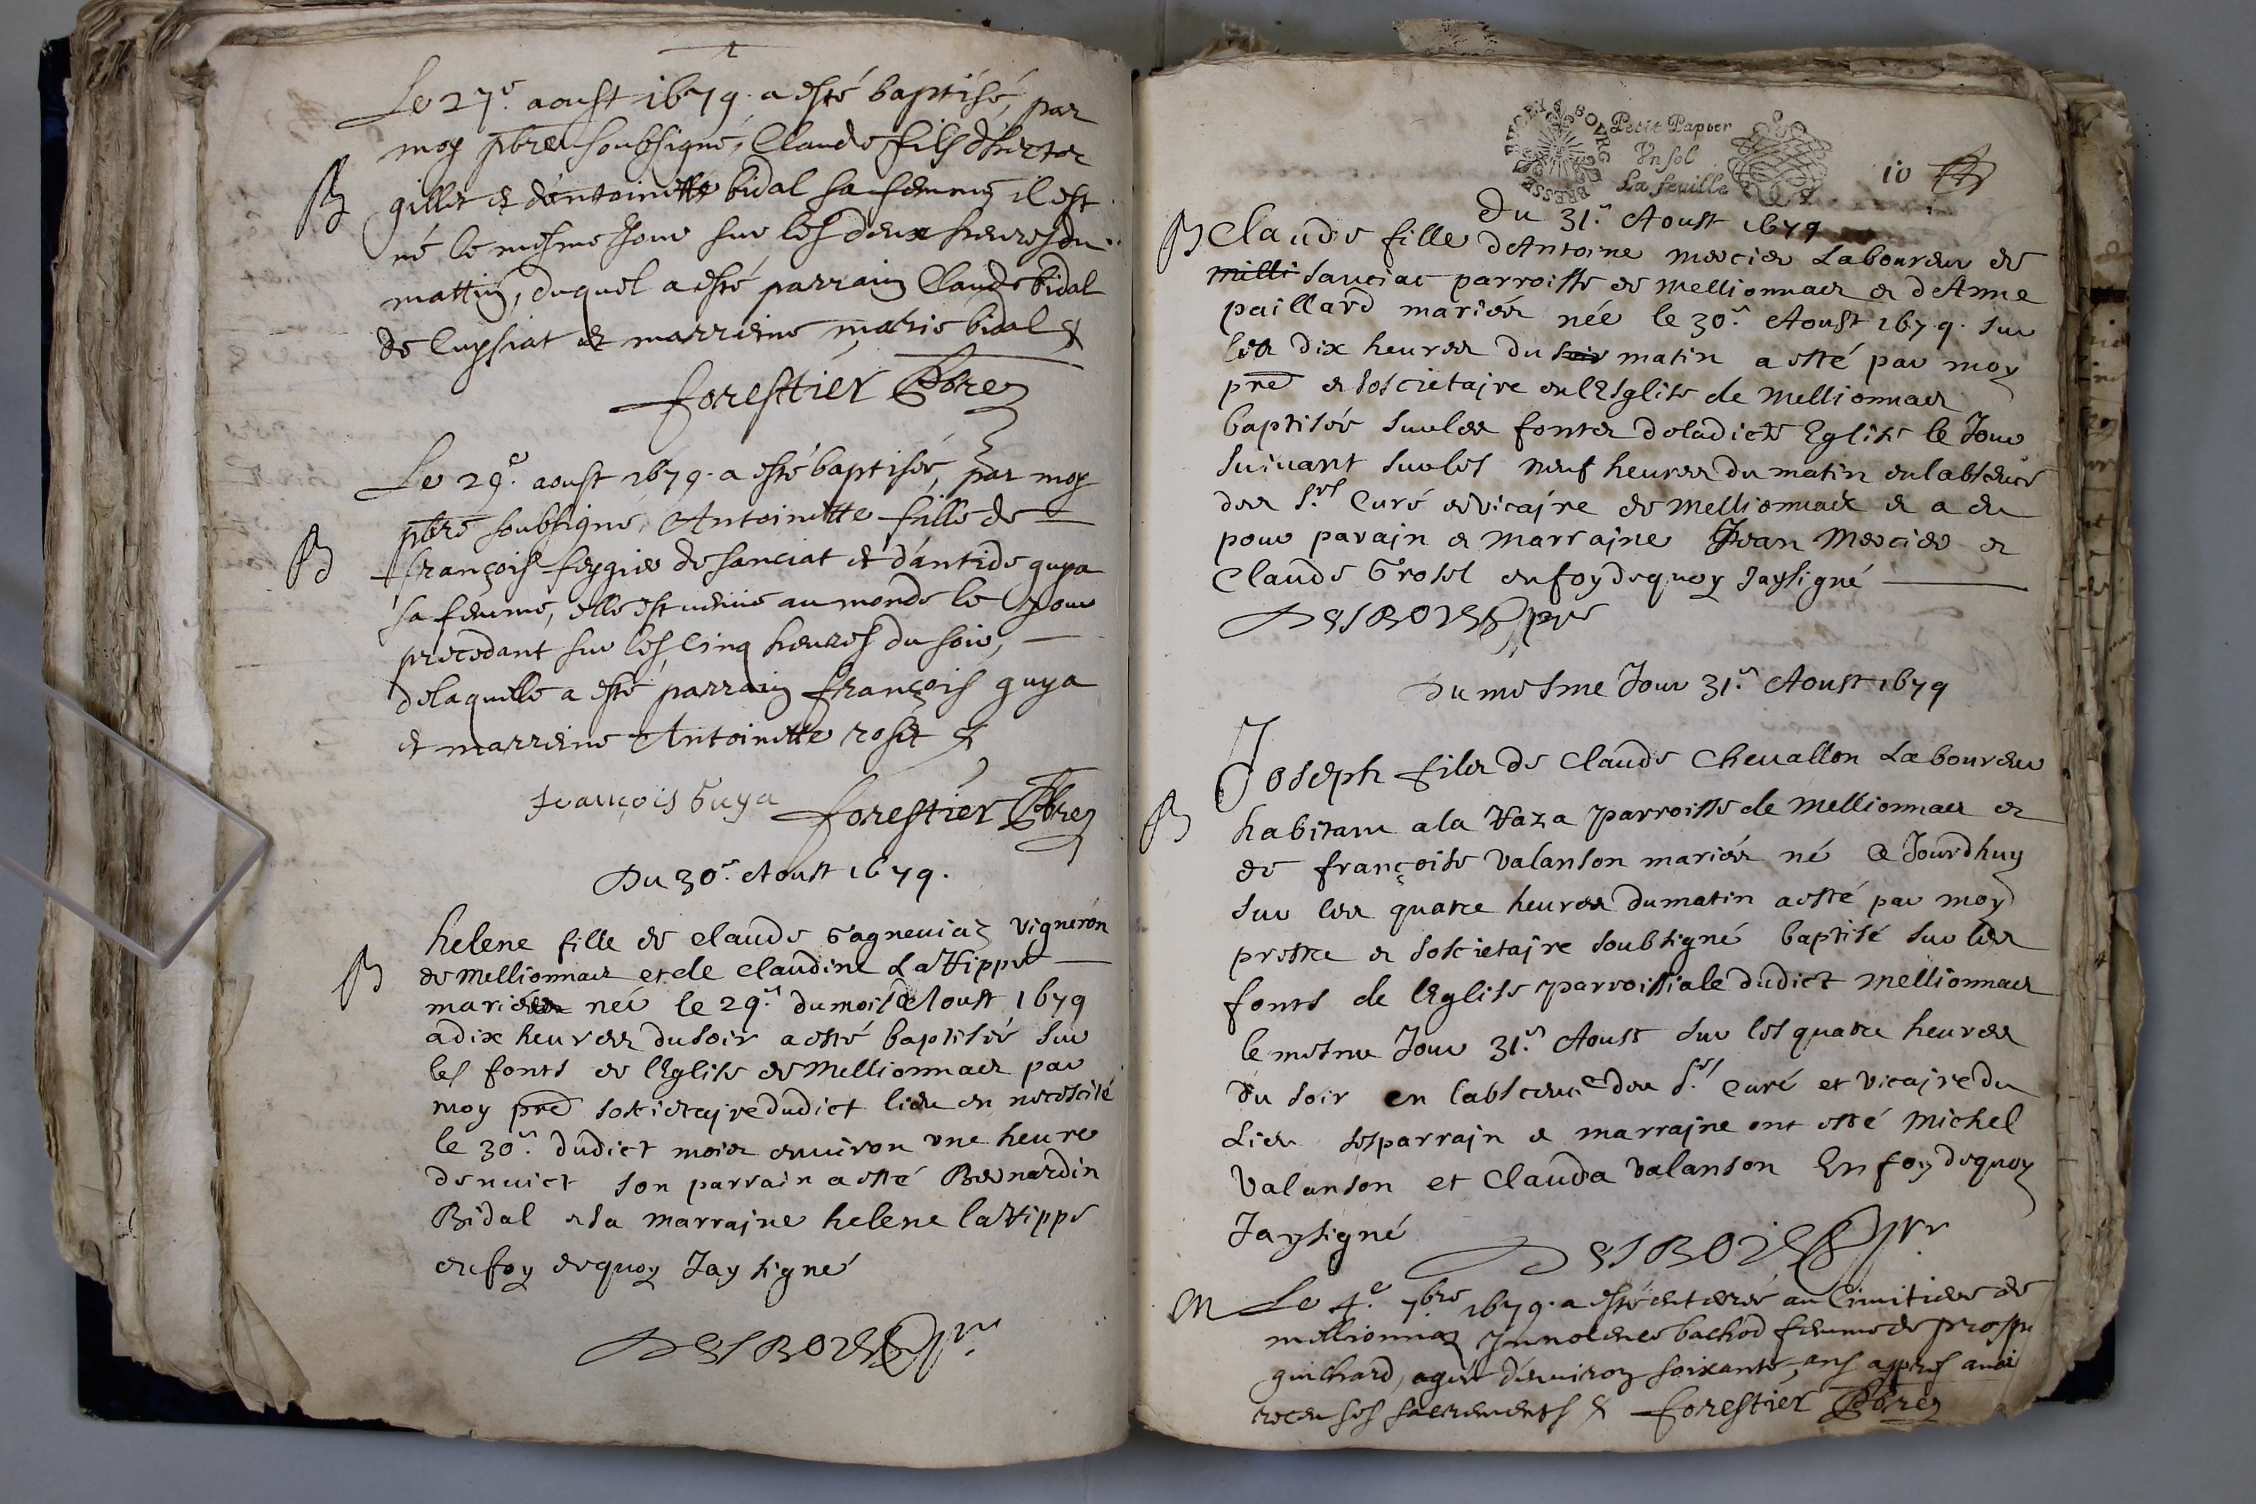 Le 27e. aoust 1679. a esté baptisé, par
moy pbre soubsigné, Claude fils d'hector
B gillet et d'entoinette bidal sa femme, il est
né le mesme Jour sur les deux heures du
mattin, duquel a esté parrain Claude bidal
de Cupsiat et marreine marie bidal &
forestier Pbre
Le 29e. aoust 1679. a esté baptisée, par moy
pbre soubsigné, Antoinette fille de
B françois feygie de sanciat et d'antide guya
sa femme, elle est venue au monde le Jour
precedant sur les cinq heures du soir,
de laquelle a esté parrain françois guya
et marreine Antoinette roset &
francois Guya forestier Pbre
Du 30e. Aoust 1679.
helene fille de claude Gagneviaz vigneron
B de Mellionnaz et de Claudine La Hippe
mariés née le 29e. du mois d'Aoust 1679
a dix heures du soir a esté baptisée sur
les fonts de l'Eglise de Mellionnaz par
moy pre sosietayre dudict lieu en necescité
le 30e. dudict mois environ une heure
de nuict son parrain a esté Bernardin
Bidal et sa marrayne helene la Hippe
en foy de quoy Jay signé
DesBores pre
Petit Papier
Un sol
La feuille
BRESSE BOVRG
10
Du 31e. Aoust 1679
B Claude fille d'Antoine mercier Laboureur de
milli sanciac parroisse de Mellionnaz et d'Anne
paillard mariés née le 30e. Aoust 1679. sur
les dix heures du soir matin a esté par moy
pre et soscietaire en l'Esglise de Mellionnaz
baptisée sur les fonts de ladicte Eglise le Jour
suivant sur les neuf heures du matin en l'absence
des Srs Curé et vicayre de Mellionnaz et a eu
pour parain et marrayne Jean Mercier et
Claude Grosel en foy de quoy Jay signé
DesBores pre
Du mesme Jour 31e. Aoust 1679
Joseph fils de Claude Chevallon Laboureur
B habitant a la Haza parroisse de Mellionnaz et
de françoise Valanson mariés né a Jourdhuy
sur les quatre heures du matin a esté par moy
prestre et soscietayre soubsigné baptisé sur les
fonts de l'Eglise parroissiale dudict Mellionnaz
le mesme Jour 31e. Aoust sur les quatre heures
du soir en l'abscence des Srs Curé et Vicayre du
Lieu ses parrain et marrayne ont esté Michel
Valanson et Clauda Valanson En foy de quoy
Jay signé
DesBores pre
M Le 4e. 7bre 1679. a esté enterré au Cimitiere de
mellionnaz Innocence bachod femme de prospe
guichard, agée d'environ soixante, ans appres avoir
receu ses sacrements & forestier Pbre